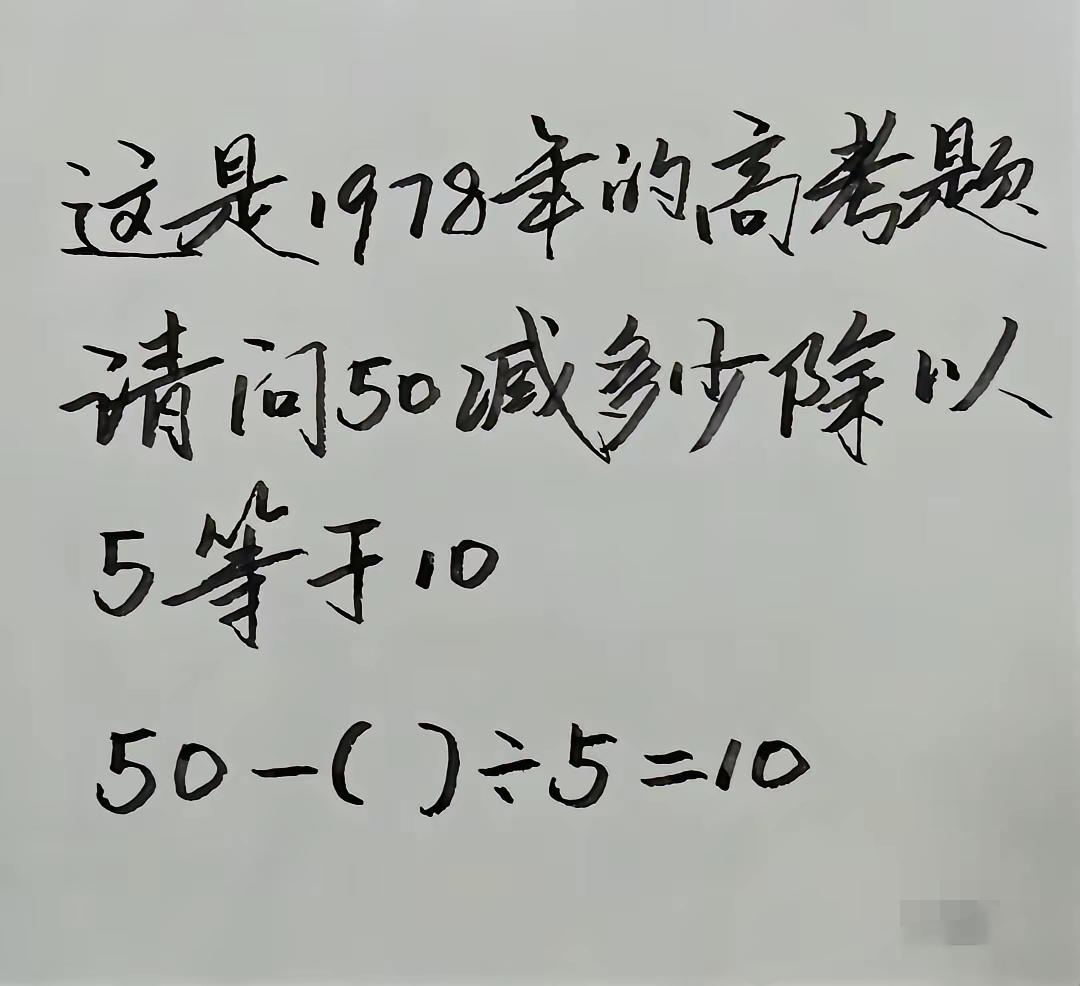 这是1978年的高考题
请问50减多少除以
5等于10
50-( )÷5=10